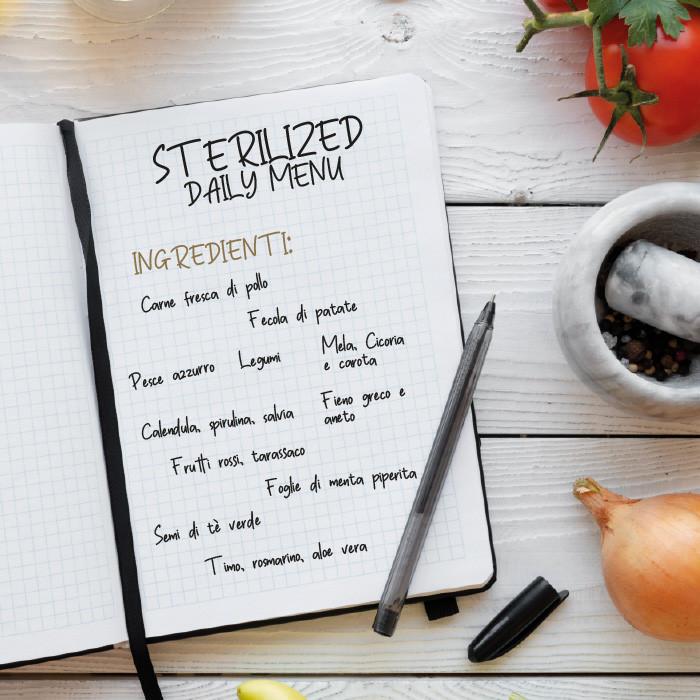 STERILIZED
DAILY MENU
INGREDIENTI:
Carne fresca di pollo
Fecola di patate
Pesce azzurro
Legumi
Mela, Cicoria
e carota
Calendula, spirulina, salvia
Fieno greco e
aneto
Frutti rossi, tarassaco
Foglie di menta piperita
Semi di tè verde
Timo, rosmarino, aloe vera